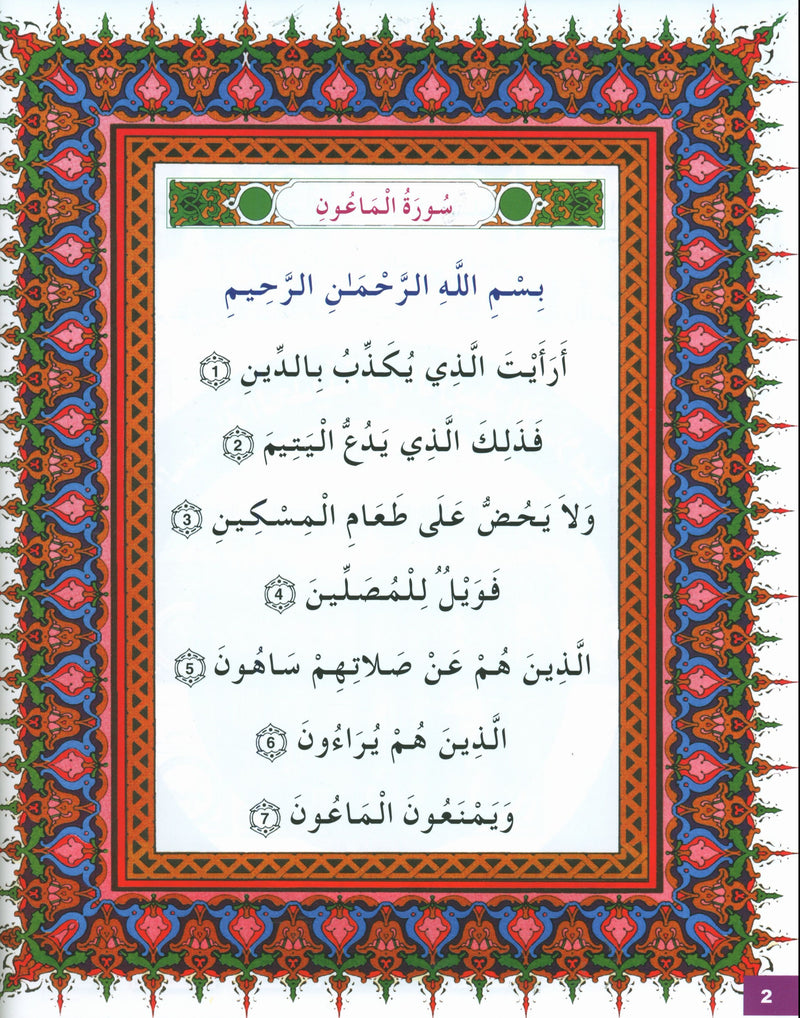 سُورَةُ الْمَاعُونِ
بِسْمِ اللَّهِ الرَّحْمَٰنِ الرَّحِيمِ
أَرَأَيْتَ الَّذِي يُكَذِّبُ بِالدِّينِ 1
فَذَلِكَ الَّذِي يَدُعُّ الْيَتِيمَ 2
وَلاَ يَحُضُّ عَلَى طَعَامِ الْمِسْكِينِ 3
فَوَيْلٌ لِلْمُصَلِّينَ 4
الَّذِينَ هُمْ عَنْ صَلاتِهِمْ سَاهُونَ 5
الَّذِينَ هُمْ يُرَاءُونَ 6
وَيَمْنَعُونَ الْمَاعُونَ 7
2